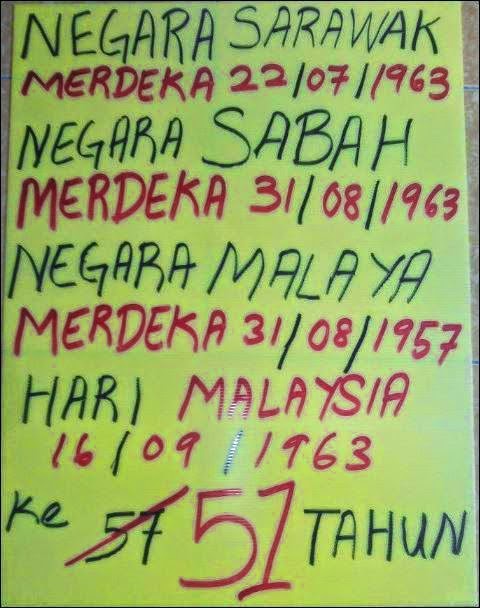 NEGARA SARAWAK
MERDEKA 22/07/1963
NEGARA SABAH
MERDEKA 31/08/1963
NEGARA MALAYA
MERDEKA 31/08/1957
HARI MALAYSIA
16/09/1963
Ke 57 51 TAHUN